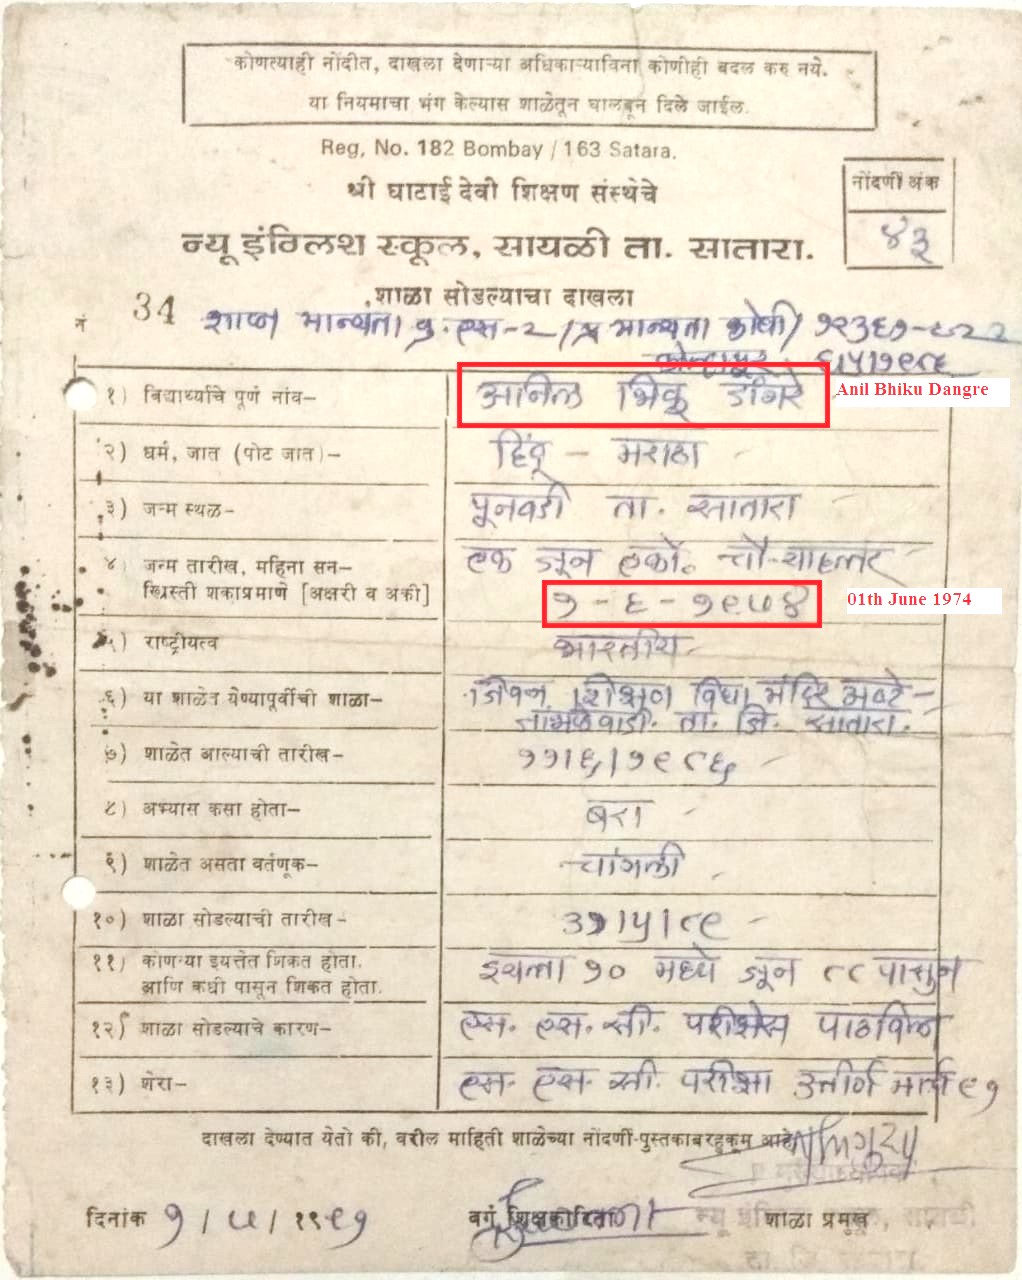 कोणत्याही नोंदीत, दाखला देणाऱ्या अधिकाऱ्याविना कोणीही बदल करु नये.
या नियमाचा भंग केल्यास शाळेतून घालवून दिले जाईल.
Reg. No. 182 Bombay / 163 Satara.
श्री घाटाई देवी शिक्षण संस्थेचे
नोंदणी अंक
४३
न्यू इंग्लिश स्कूल, सायळी ता. सातारा.
शाळा सोडल्याचा दाखला
नं 34 मान्यता
१) विद्यार्थ्याचे पूर्ण नांव- अनिल भिकू डांगरे Anil Bhiku Dangre
२) धर्म, जात (पोट जात)- हिंदू - मराठा
३) जन्म स्थळ- पूनवडी ता. सातारा
४ जन्म तारीख, महिना सन- एक जून एकोa चौ-याहत्तर
ख्रिस्ती शकाप्रमाणे [अक्षरी व अंकी] १ - ६ - १९७४ 01th June 1974
५) राष्ट्रीयत्व भारतीय
६) या शाळेत येण्यापूर्वीची शाळा- जिवन शिक्षण विद्या मंदिर
जांभळेवाडी ता. जि. सातारा.
७) शाळेत आल्याची तारीख- ११।६।१९८६
८) अभ्यास कसा होता- बरा
९) शाळेत असता वर्तणूक- चांगली
१०) शाळा सोडल्याची तारीख- ३१।५।८९
११) कोणत्या इयत्तेत शिकत होता. इयत्ता १० मध्ये जून ८८ पासुन
आणि कधी पासून शिकत होता.
१२) शाळा सोडल्याचे कारण- एस. एस. सी. परीक्षेस पाठविला
१३) शेरा- एस. एस. सी. परीक्षा उत्तीर्ण मार्च ९१
दाखला देण्यात येतो की, वरील माहिती शाळेच्या नोंदणी-पुस्तकाबरहुकूम आहे.
दिनांक १ / ७ / १९९१ वर्ग शिक्षक शाळा प्रमुख